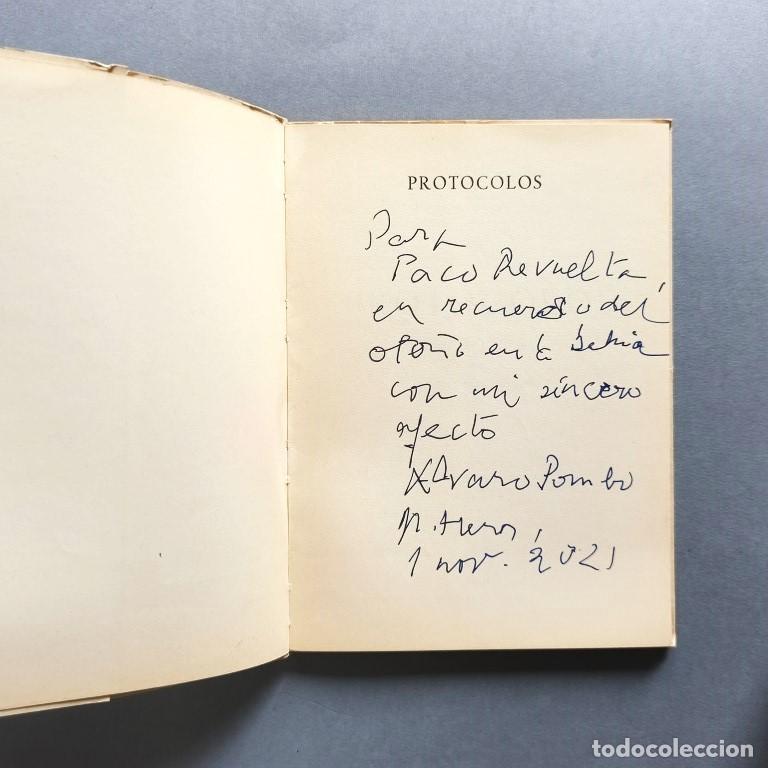 PROTOCOLOS
Para
Paco Revuelta,
en recuerdo del
otoño en la bahia
con mi sincero
afecto
Alvaro Pombo
1 nov. 2021
todocoleccion